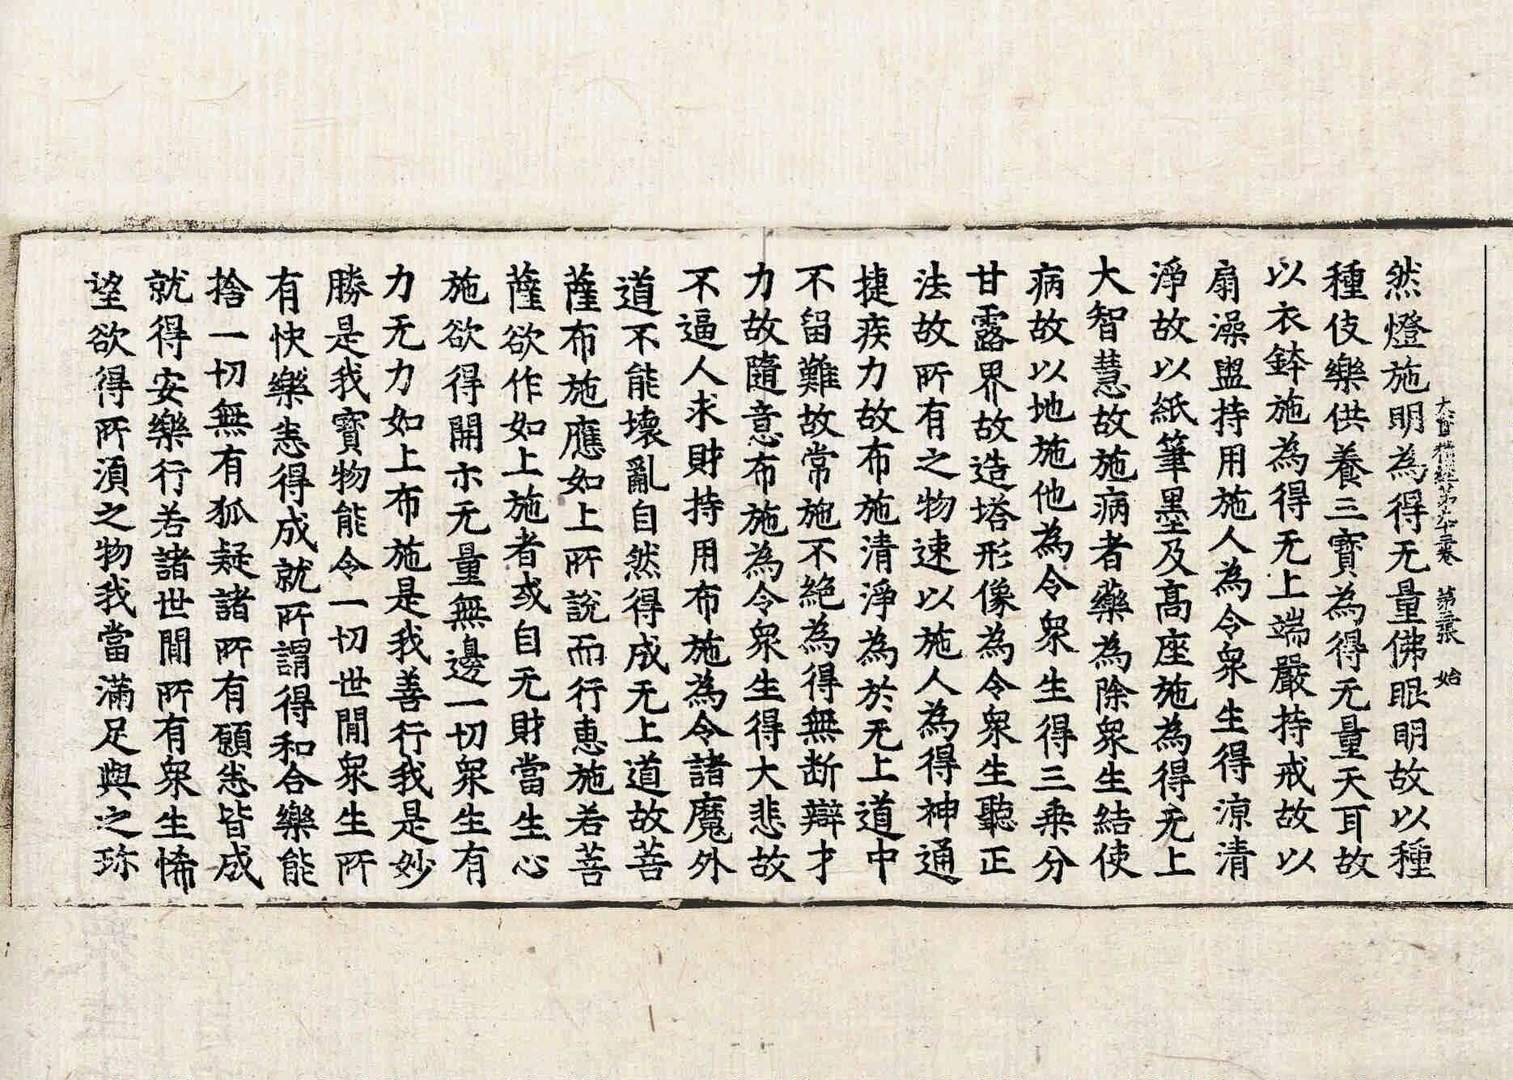 大寶積經第九十三卷　第三張　始
然燈施明為得无量佛眼明故以種
種伎樂供養三寶為得无量天耳故
以衣鉢施為得无上端嚴持戒故以
扇澡盥持用施人為令衆生得凉清
淨故以紙筆墨及髙座施為得无上
大智慧故施病者藥為除衆生結使
病故以地施他為令衆生得三乘分
甘露界故造塔形像為令衆生聽正
法故所有之物速以施人為得神通
捷疾力故布施清淨為於无上道中
不留難故常施不絕為得無断辯才
力故隨意布施為令衆生得大悲故
不逼人求財持用布施為令諸魔外
道不能壞亂自然得成无上道故菩
薩布施應如上所說而行惠施若菩
薩欲作如上施者或自无財當生心
施欲得開亦无量無邊一切衆生有
力无力如上布施是我善行我是妙
勝是我寳物能令一切世閒衆生所
有快樂悉得成就所謂得和合樂能
捨一切無有狐疑諸所有願悉皆成
就得安樂行若諸世閒所有衆生悕
望欲得所湏之物我當滿足與之珎